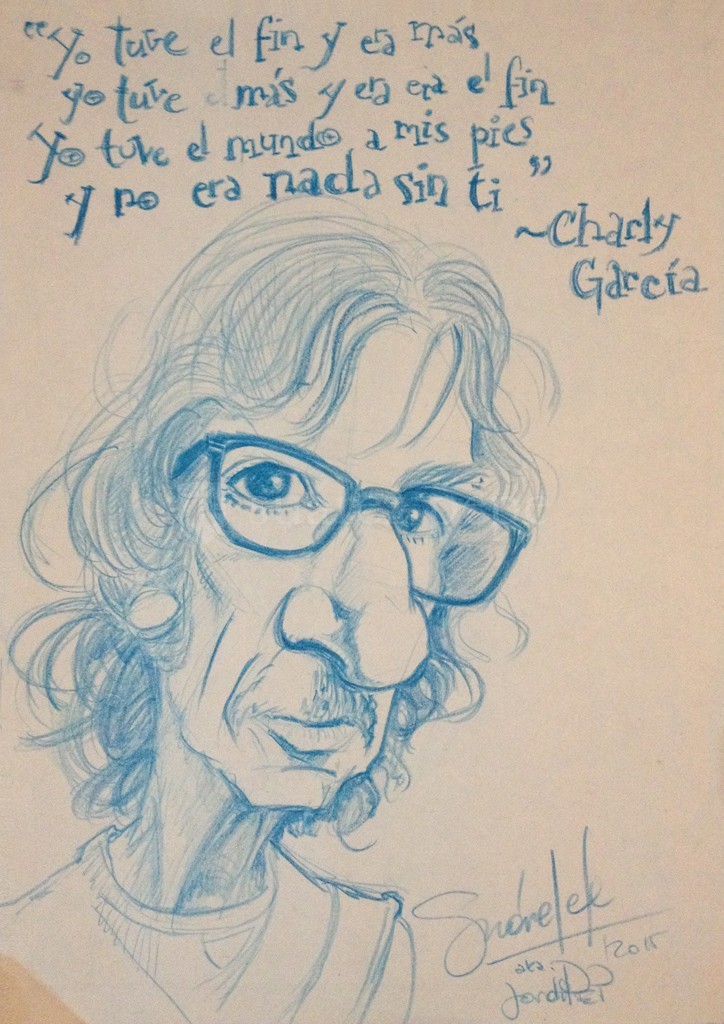 “Yo tuve el fin y era más
yo tuve el más y era era el fin
Yo tuve el mundo a mis pies
y no era nada sin ti”
~Charly
García
2015
aka: